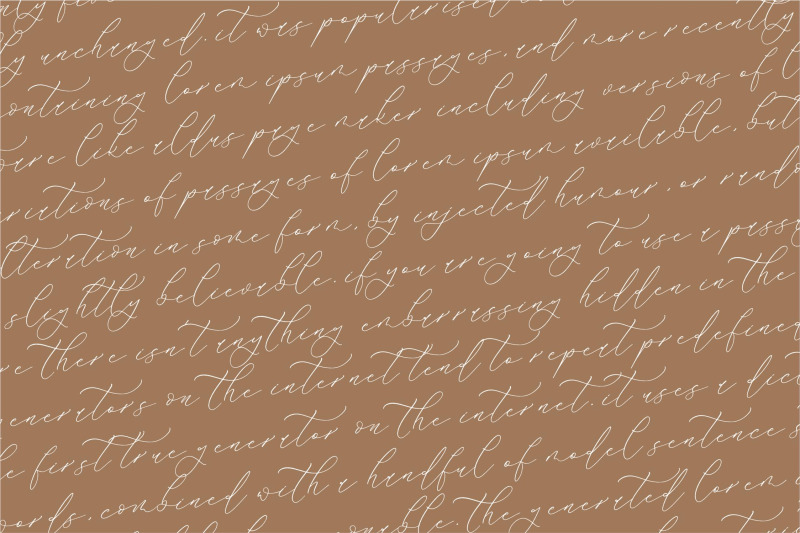 unchanged. it was popularised
containing lorem ipsum passages. and more recently
like aldus page maker including versions of
of passages of lorem ipsum available. but
in some form. by injected humour. or
slightly believable. if you are going to use a
there isn't anything embarrassing hidden in the
on the internet tend to repeat predefined
first true generator on the internet. it uses a
combined with a handful of model sentence
the generated lorem